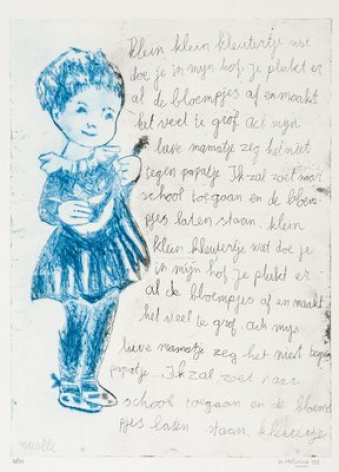 klein klein kleutertje wat
doe je in mijn hof. Je plukt er
al de bloempjes af en maakt
het veel te grof. Ach mijn
lieve mamatje zeg het niet
tegen papatje Ik zal zoet naar
school toegaan en de bloem-
pjes laten staan. klein
klein kleutertje wat doe je
in mijn hof je plukt er
al de bloempjes af en maakt
het veel te grof. ach mijn
lieve mamatje zeg het niet tegen
papatje... Ik zal zoet naar
school toegaan en de bloem
pjes laten staan. kleutertje